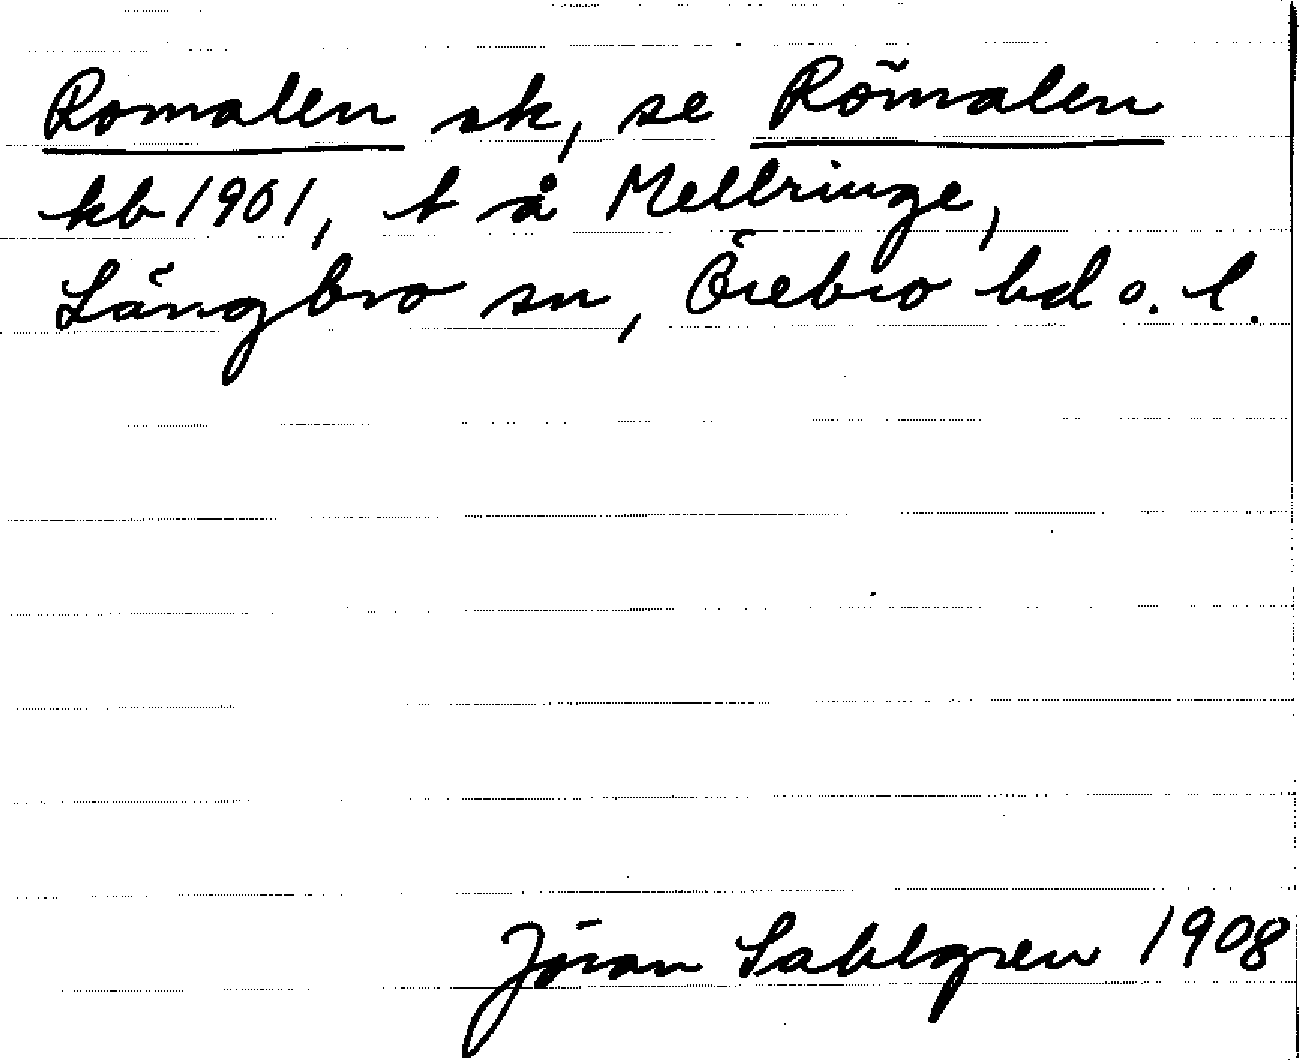 Romalen sk, se Römalen
kb 1901, t så Mellringe,
Långbro sn, Örebro hd o. l.
Jöran Sahlgren 1908